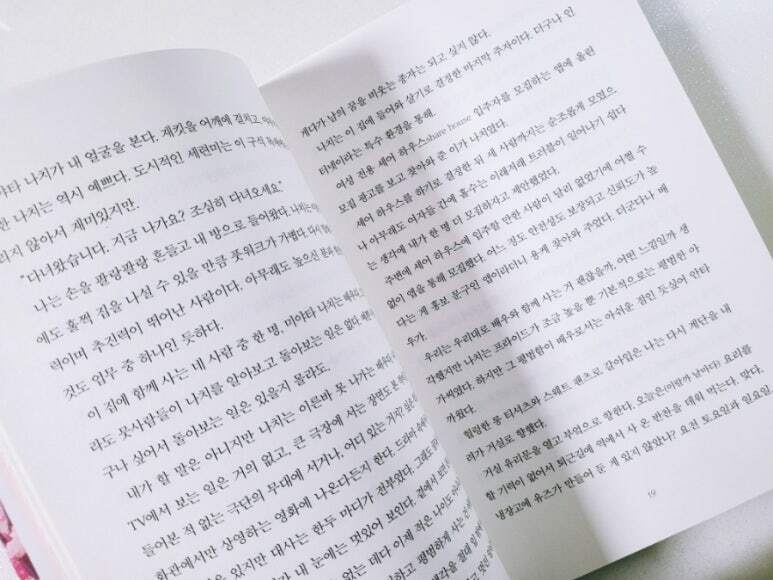 아타 나치가 내 얼굴을 본다. 재킷을 어깨에 걸치고
한 나치는 역시 예쁘다. 도시적인 세련미는 이 구식
리지 않아서 재미있지만.
"다녀왔습니다. 지금 나가요? 조심히 다녀오세요"
나는 손을 팔랑팔랑 흔들고 내 방으로 들어왔다. 나치는
에도 훌쩍 짐을 나설 수 있을 만큼 풋워크가 가볍다. 다시
력이며 추진력이 뛰어난 사람이다. 아무래도 높으신 분과
것도 업무 중 하나인 듯하다.
이 집에 함께 사는 내 사람 중 한 명, 미야타 나치는 배우다.
라도 뭇사람들이 나치를 알아보고 돌아보는 일은 없다.
구나 싶어서 돌아보는 일은 있을지 몰라도.
내가 할 말은 아니지만 나치는 이른바 못 나가는 배우다.
TV에서 보는 일은 거의 없고, 큰 극장에 서는 장면도
들어본 적 없는 극단의 무대에 서거나, 어디 있는 거지? 싶은
화관에서만 상영하는 영화에 나온다든지 한다. 드라마
은 있지만 대사는 한두 마디가 전부였다. 그래도
가 내 눈에는 멋있어 보인다. 곁에서
없는 데다 이제 적은 나이도
하고 평범하게 사는
생각을 절대
게다가 남의 꿈을 비웃는 종자는 되고 싶지 않다.
나치는 이 집에 들어와 살기로 결정한 마지막 주자이다. 더구나 인
터네이라는 특수 환경을 통해.
여성 전용 셰어 하우스share house 입주자를 모집하는 앱에 올린
모집 광고를 보고 찾아와 준 이가 나치였다.
셰어 하우스를 하기로 결정한 뒤 세 사람까지는 순조롭게 모였으
나 아무래도 여자들 간에 홀수는 이래저래 트러블이 일어나기 쉽다
는 생각에 내가 한 명 더 모집하자고 제안했었다.
주변에 셰어 하우스에 입주할 만한 사람이 달리 없었기에 어쩔 수
없이 앱을 통해 모집했다. 어느 정도 안전성도 보장되고 신뢰도가 높
다는 게 홍보 문구인 앱이라더니 용케 찾아와 주었다. 더군다나 배
우가.
우리는 우리대로 배우와 함께 사는 거 괜찮을까, 어떤 느낌일까 생
각했지만 나치는 프라이드가 조금 높을 뿐 기본적으로는 평범한 아
가씨였다. 하지만 그 평범함이 배우로서는 아쉬운 점인 듯싶어 안타
까웠다.
헐렁한 롱 티셔츠와 스웨트 팬츠로 갈아입은 나는 다시 계단을 내
려가 거실로 향했다.
거실 유리문을 열고 부엌으로 향한다. 오늘은(이랄까 날마다) 요리를
할 기력이 없어서 퇴근길에 역에서 사 온 반찬을 데워 먹는다. 맞다.
냉장고에 유즈가 만들어 둔 게 있지 않았나? 요전 토요일과 일요일
19